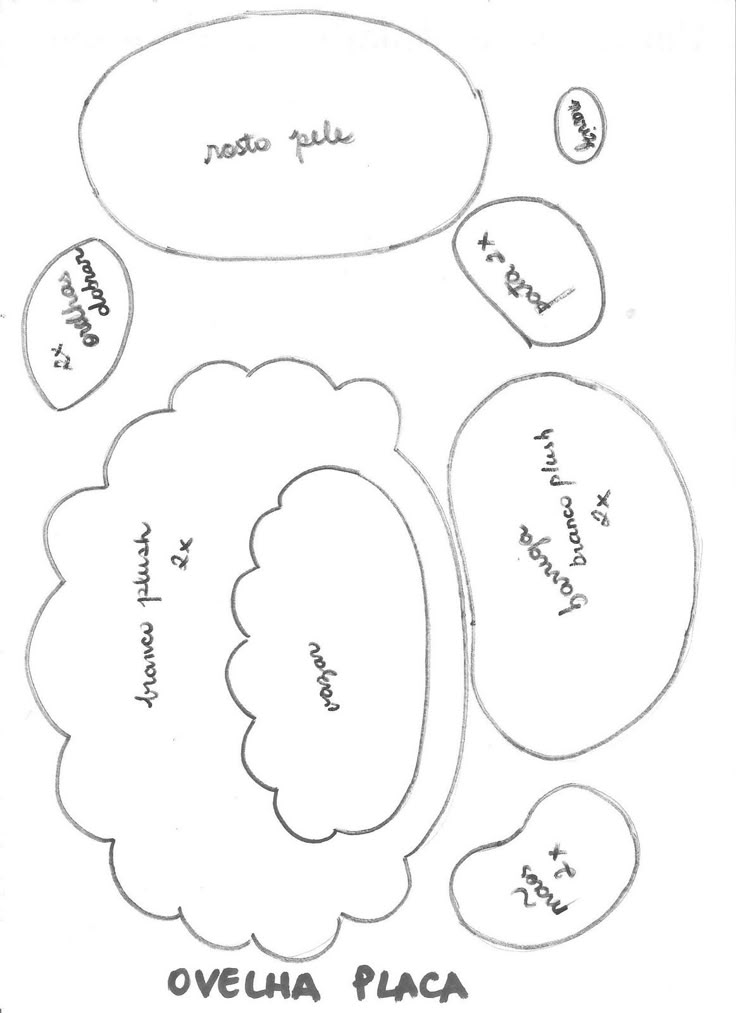 rosto pele
pata 2x
orelhas
dobrar
2x
branco plush
2x
vazar
barriga
branco plush
2x
mãos
2x
OVELHA PLACA